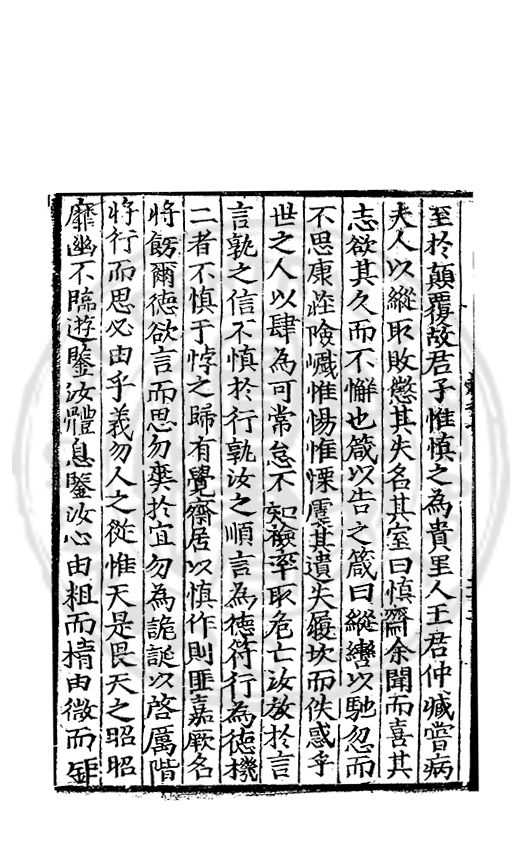 至於顛覆故君子惟慎之為貴里人王君仲臧嘗病
夫人以縱取敗懲其失名其室曰慎齋余聞而喜其
志欲其久而不懈也箴以告之箴曰縱轡以馳忽而
不思康莊險巇惟惕惟慄慮其遺失履坎而佚惑乎
世之人以肆為可常怠不知檢率取危亡汝放於言
言孰之信不慎於行孰汝之順言為德符行為德機
二者不慎于悖之歸有覺齋居以慎作則匪嘉厥名
將飭爾德欲言而思勿爽於宜勿為詭誕以啓厲階
將行而思必由乎義勿人之從惟天是畏天之昭昭
靡幽不臨遊鑒汝體息鑒汝心由粗而精由微而